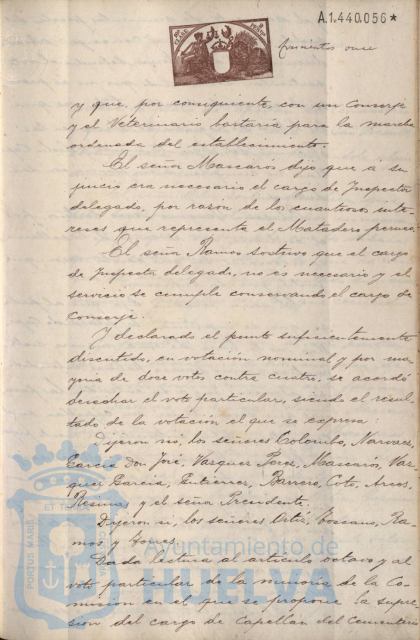 A.1.440.056*
y que, por consiguiente, con un Conserje
y el Veterinario bastaría para la marcha
ordenada del establecimiento.
El señor Mascarós dijo que á su
juicio era necesario el cargo de Inspector
delegado, por razón de los cuantiosos inte-
reses que representa el Matadero
El señor Ramos sostuvo que el cargo
de Inspector delegado, no es necesario y el
servicio se cumple conservando el cargo de
Conserje.
Y declarado el punto suficientemente
discutido, en votación nominal y por ma-
yoria de doce votos contra cuatro, se acordó
desechar el voto particular, siendo el resul-
tado de la votación el que se expresa.
Dijeron nó, los señores Colombo, Narvaez,
García Don José, Vazquez Mascarós, Vaz-
quez García, Gutierrez, Barrero, Coto, Arcos,
y el señor Presidente.
Dijeron si, los señores Ortiz, Toscano, Ra-
mos y Torres.
Dada lectura al artículo octavo y al
voto particular de la minoria de la Co-
mision en el que se propone la supre-
sion del cargo de Capellan del Cementerio
PORTUS MARIS
ET TERRÆ
Ayuntamiento de
HUELVA